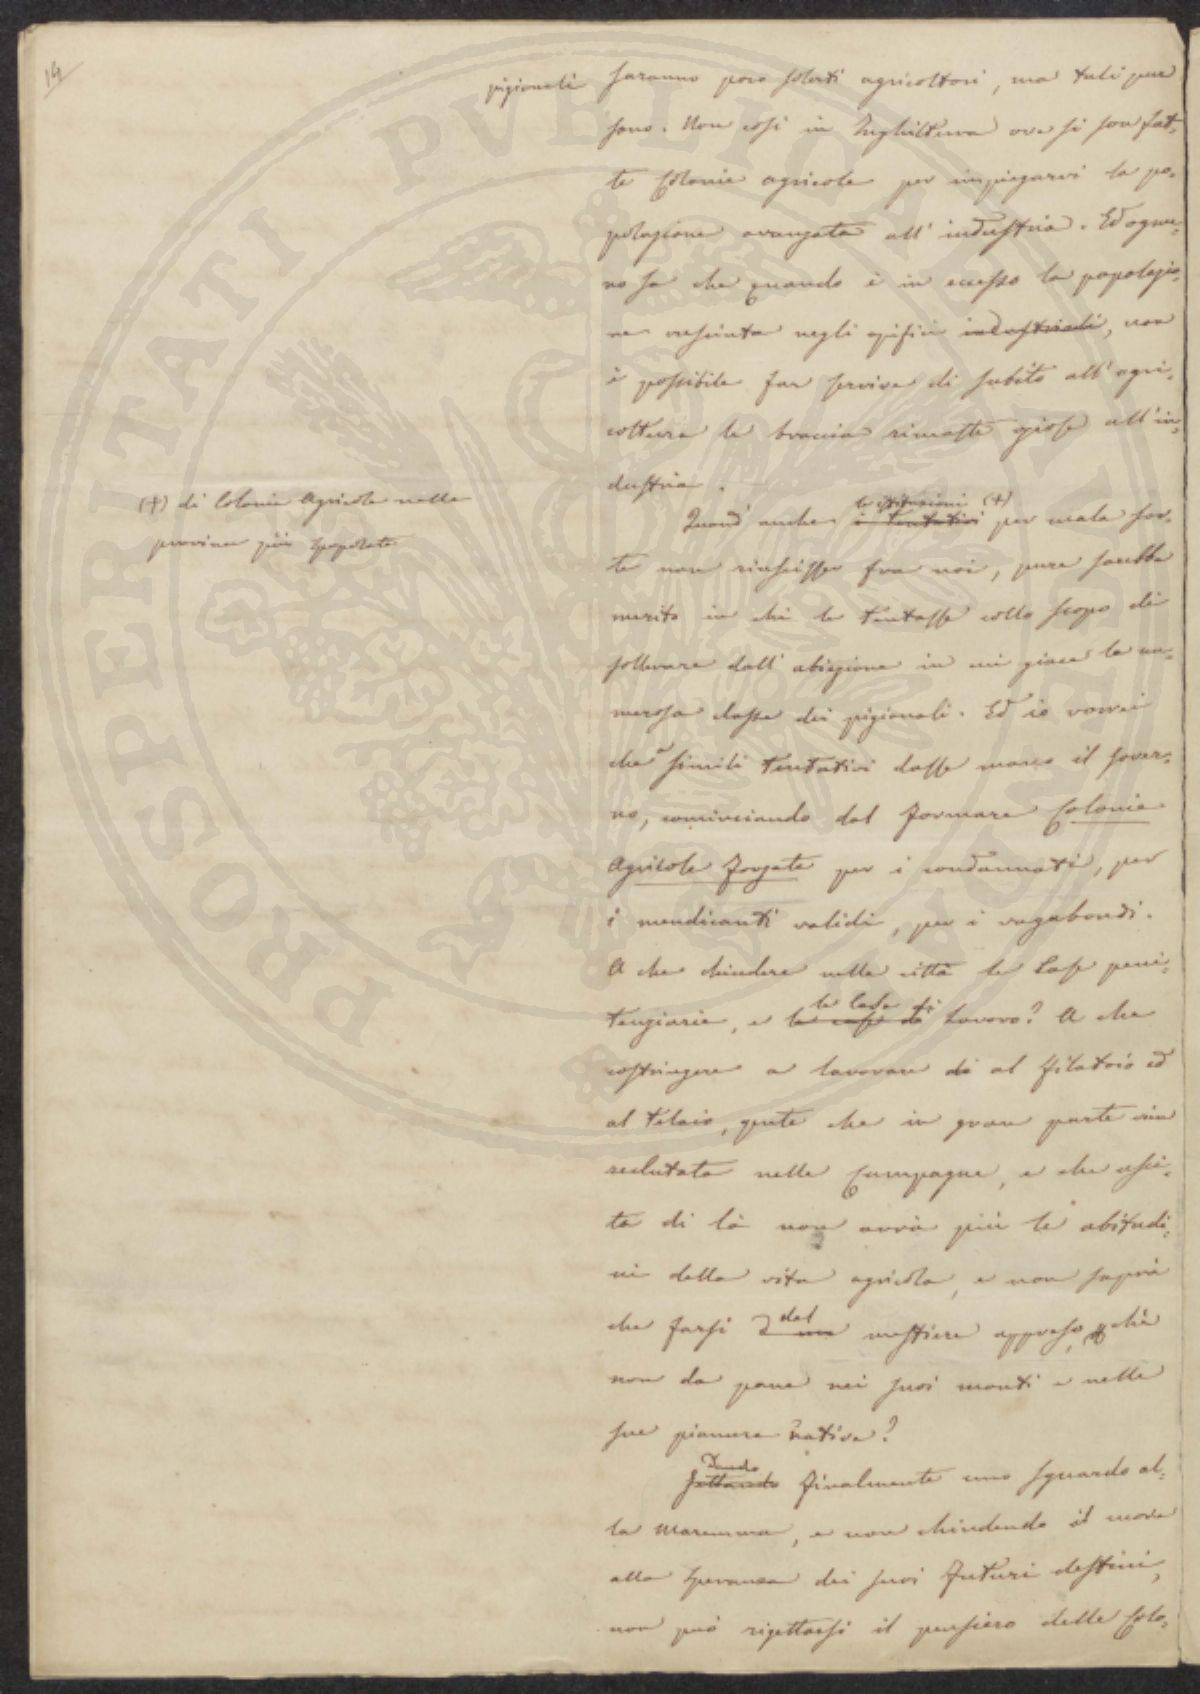 14
pigionali saranno poco solerti agricoltori, ma tali pur
sono. Non così in Inghilterra ove si son fat-
te Colonie agricole per impiegarvi la po-
polazione avanzata all'industria. Ed ognu-
no sa che quando è in eccesso la popolazio-
ne cresciuta negli opifici industriali, non
è possibile far servire di subito all'agri-
coltura le braccia rimaste oziose all'in-
dustria.
Quand'anche i tentativi le istituzioni (+) per mala sor-
te non riuscisser fra noi, pure sarebbe
merito in chi le tentasse collo scopo di
sollevare dall'abiezione in cui giace la nu-
merosa classe dei pigionali. Ed io vorrei
che a simili tentativi dasse mano il Gover-
no, cominciando dal formare Colonie
Agricole Forzate per i condannati, per
i mendicanti validi, per i vagabondi.
A che chiudere nelle città le Case peni-
tenziarie, e le case di le Case di Lavoro? A che
costringere a lavorare di al filatoio ed
al telaio, gente che in gran parte vien
reclutata nelle Campagne, e che usci-
ta di là non avrà più le abitudi-
ni della vita agricola, e non saprà
che farsi del mestiere appreso, chè
non dà pane nei suoi monti e nelle
sue pianure native?
Gettando Dando finalmente uno sguardo al-
la Maremma, e non chiudendo il cuore
alla speranza dei suoi futuri destini,
non può rigettarsi il pensiero delle Colo-
(+) di Colonie Agricole nelle
provincie più spopolate
PROSPERITATI PVBLICAE